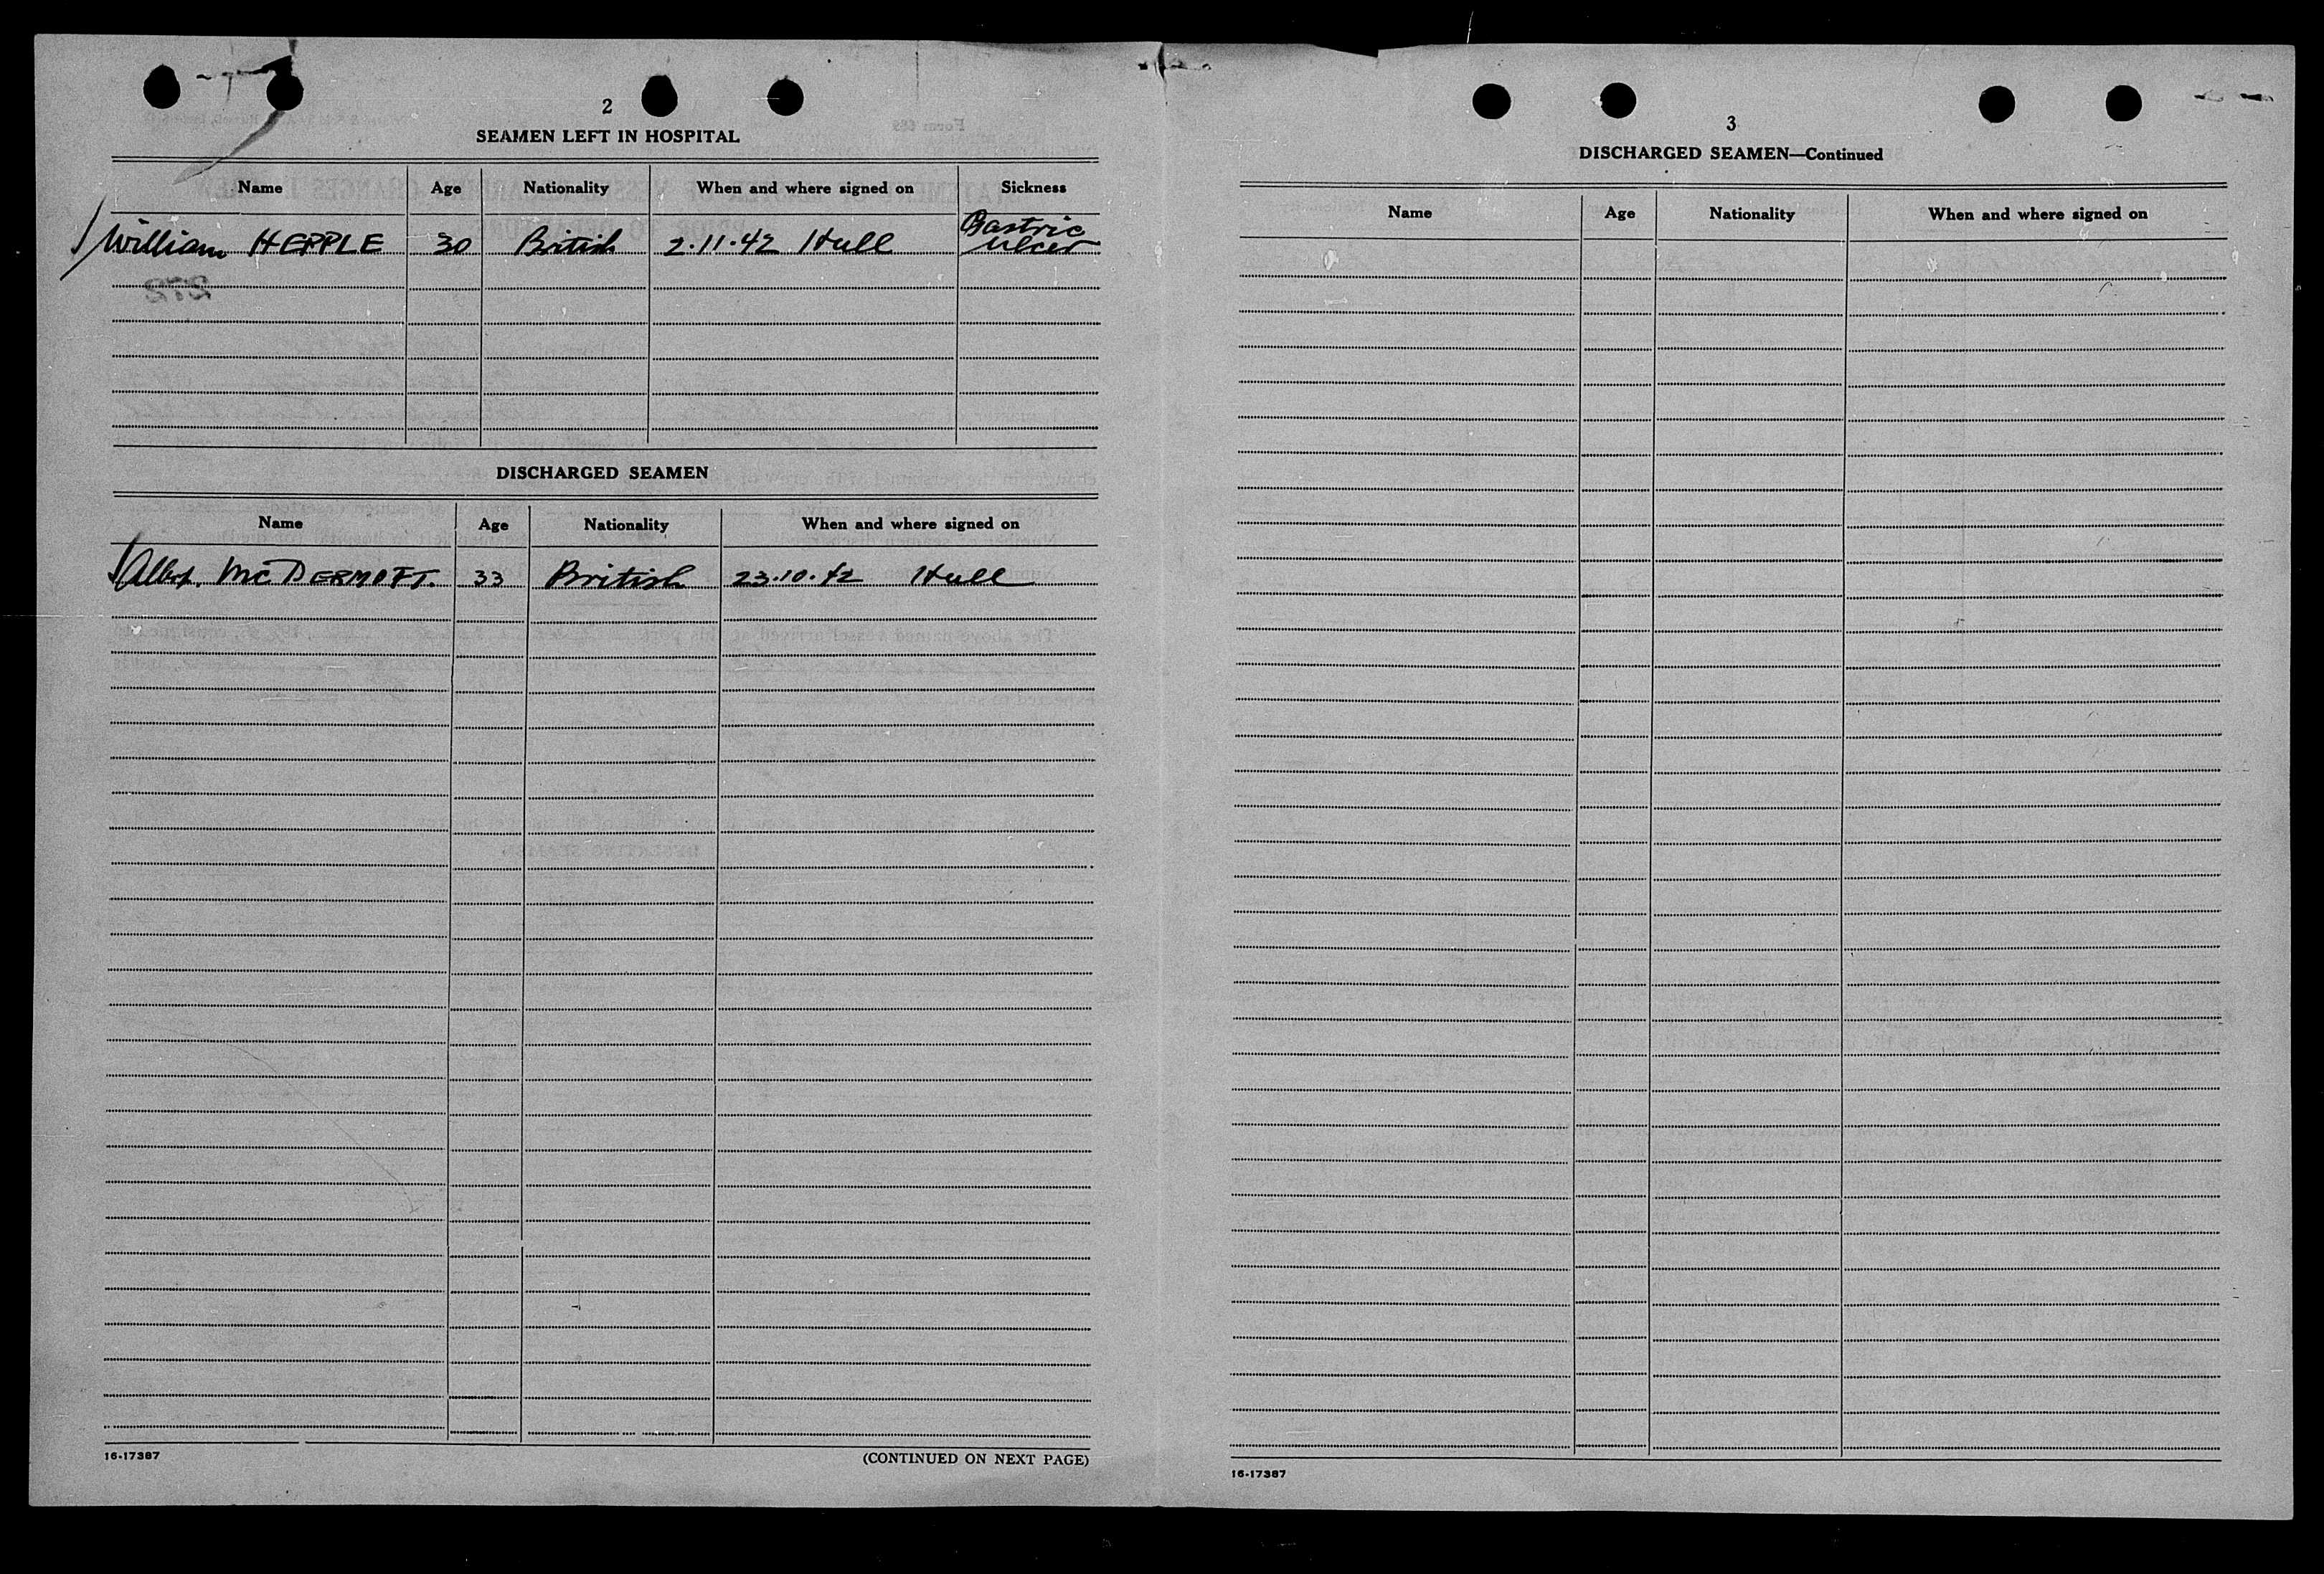 2
SEAMEN LEFT IN HOSPITAL
Name Age Nationality When and where signed on Sickness
William HEPPLE 30 British 2.11.42 Hull Gastric
ulcer
DISCHARGED SEAMEN
Name Age Nationality When and where signed on
Albert. McDERMOTT. 33 British 23.10.42 Hull
16-17387 (CONTINUED ON NEXT PAGE)
3
DISCHARGED SEAMEN—Continued
Name Age Nationality When and where signed on
16-17387